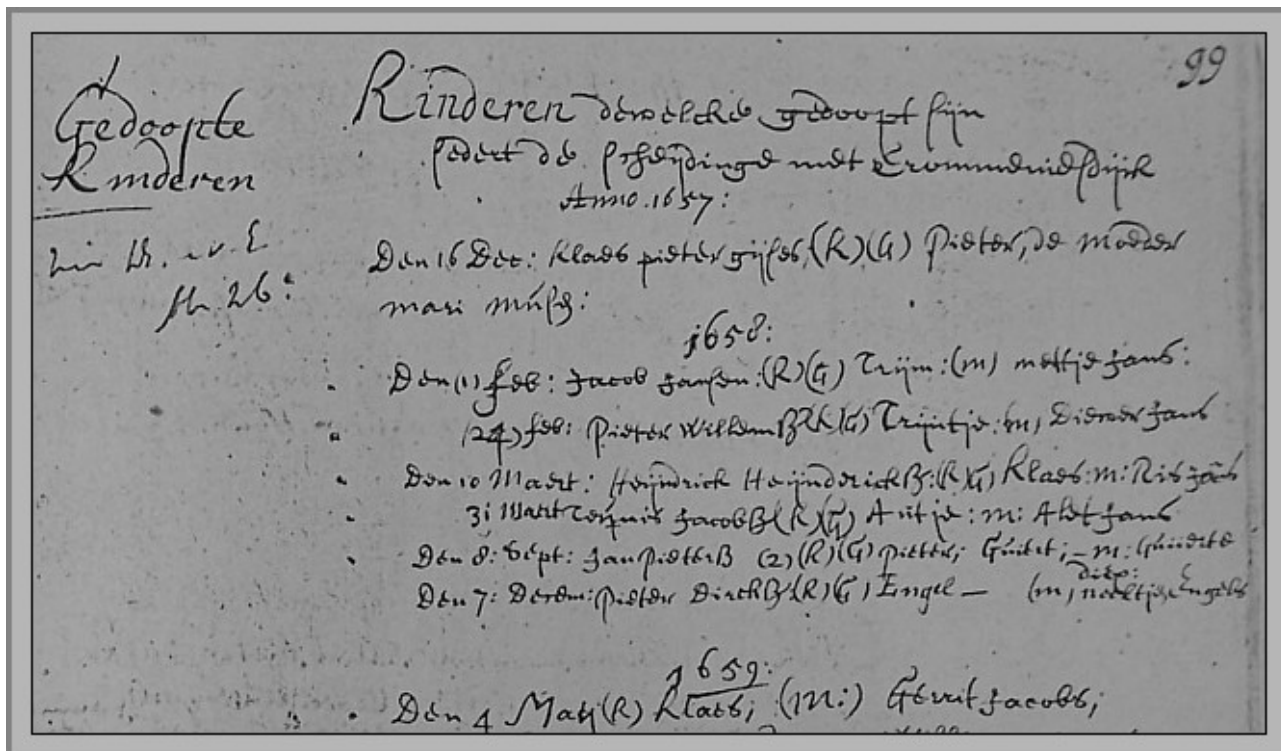 99
Gedoopte
Kinderen
Kinderen dewelcke gedoopt sijn
sedert de scheijdinge met Crommeniesdijck
Anno. 1657:
Den 16 Dec: Klaes pieter gijses, (K) (G) Pieter, de moeder
mari
1658:
Den (1) feb: Jacob Jansen: (K) (G) Trijm: (m) mettje Jans:
(24) feb: Pieter Willemß (K) (G) Trijntje: m, Diewer Jans
Den 10 Maert: Heijndrick Heijnderickß: (K) (G) Klaes: m: Ris Jans
31 Maert Teunis Jacobß (K) (G) Antje: m: Alet Jans
Den 8: Sept: Jan Pieterß (2) (K) (G) pieter, Guiert; - m: Guierte
Den 7: Decem: Pieter Dirckß (K) (G) Engel - (m) neeltje Engels
1659:
Den 4 Maij (K) Klaes; (m:) Gerrit Jacobs;